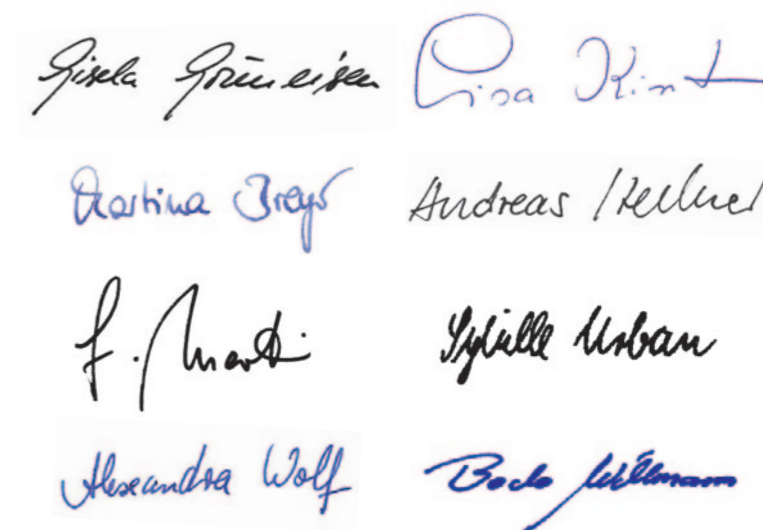 Gisela Grüneisen Lisa Kint
Martina Breyer Andreas
F. Martin Sybille Urban
Alexandra Wolf Bodo Willmann